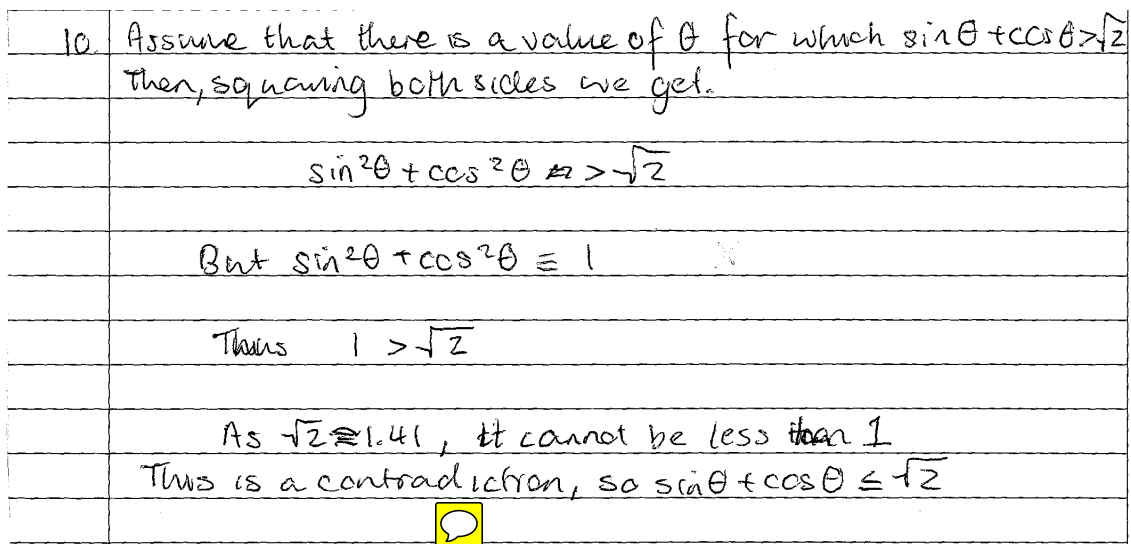 10. Assume that there is a value of θ for which sinθ + cosθ > √2
Then, squaring both sides we get.
sin²θ + cos²θ > √2
But sin²θ + cos²θ ≡ 1
Thus 1 > √2
As √2 ≈ 1.41, it cannot be less than 1
This is a contradiction, so sinθ + cosθ ≤ √2